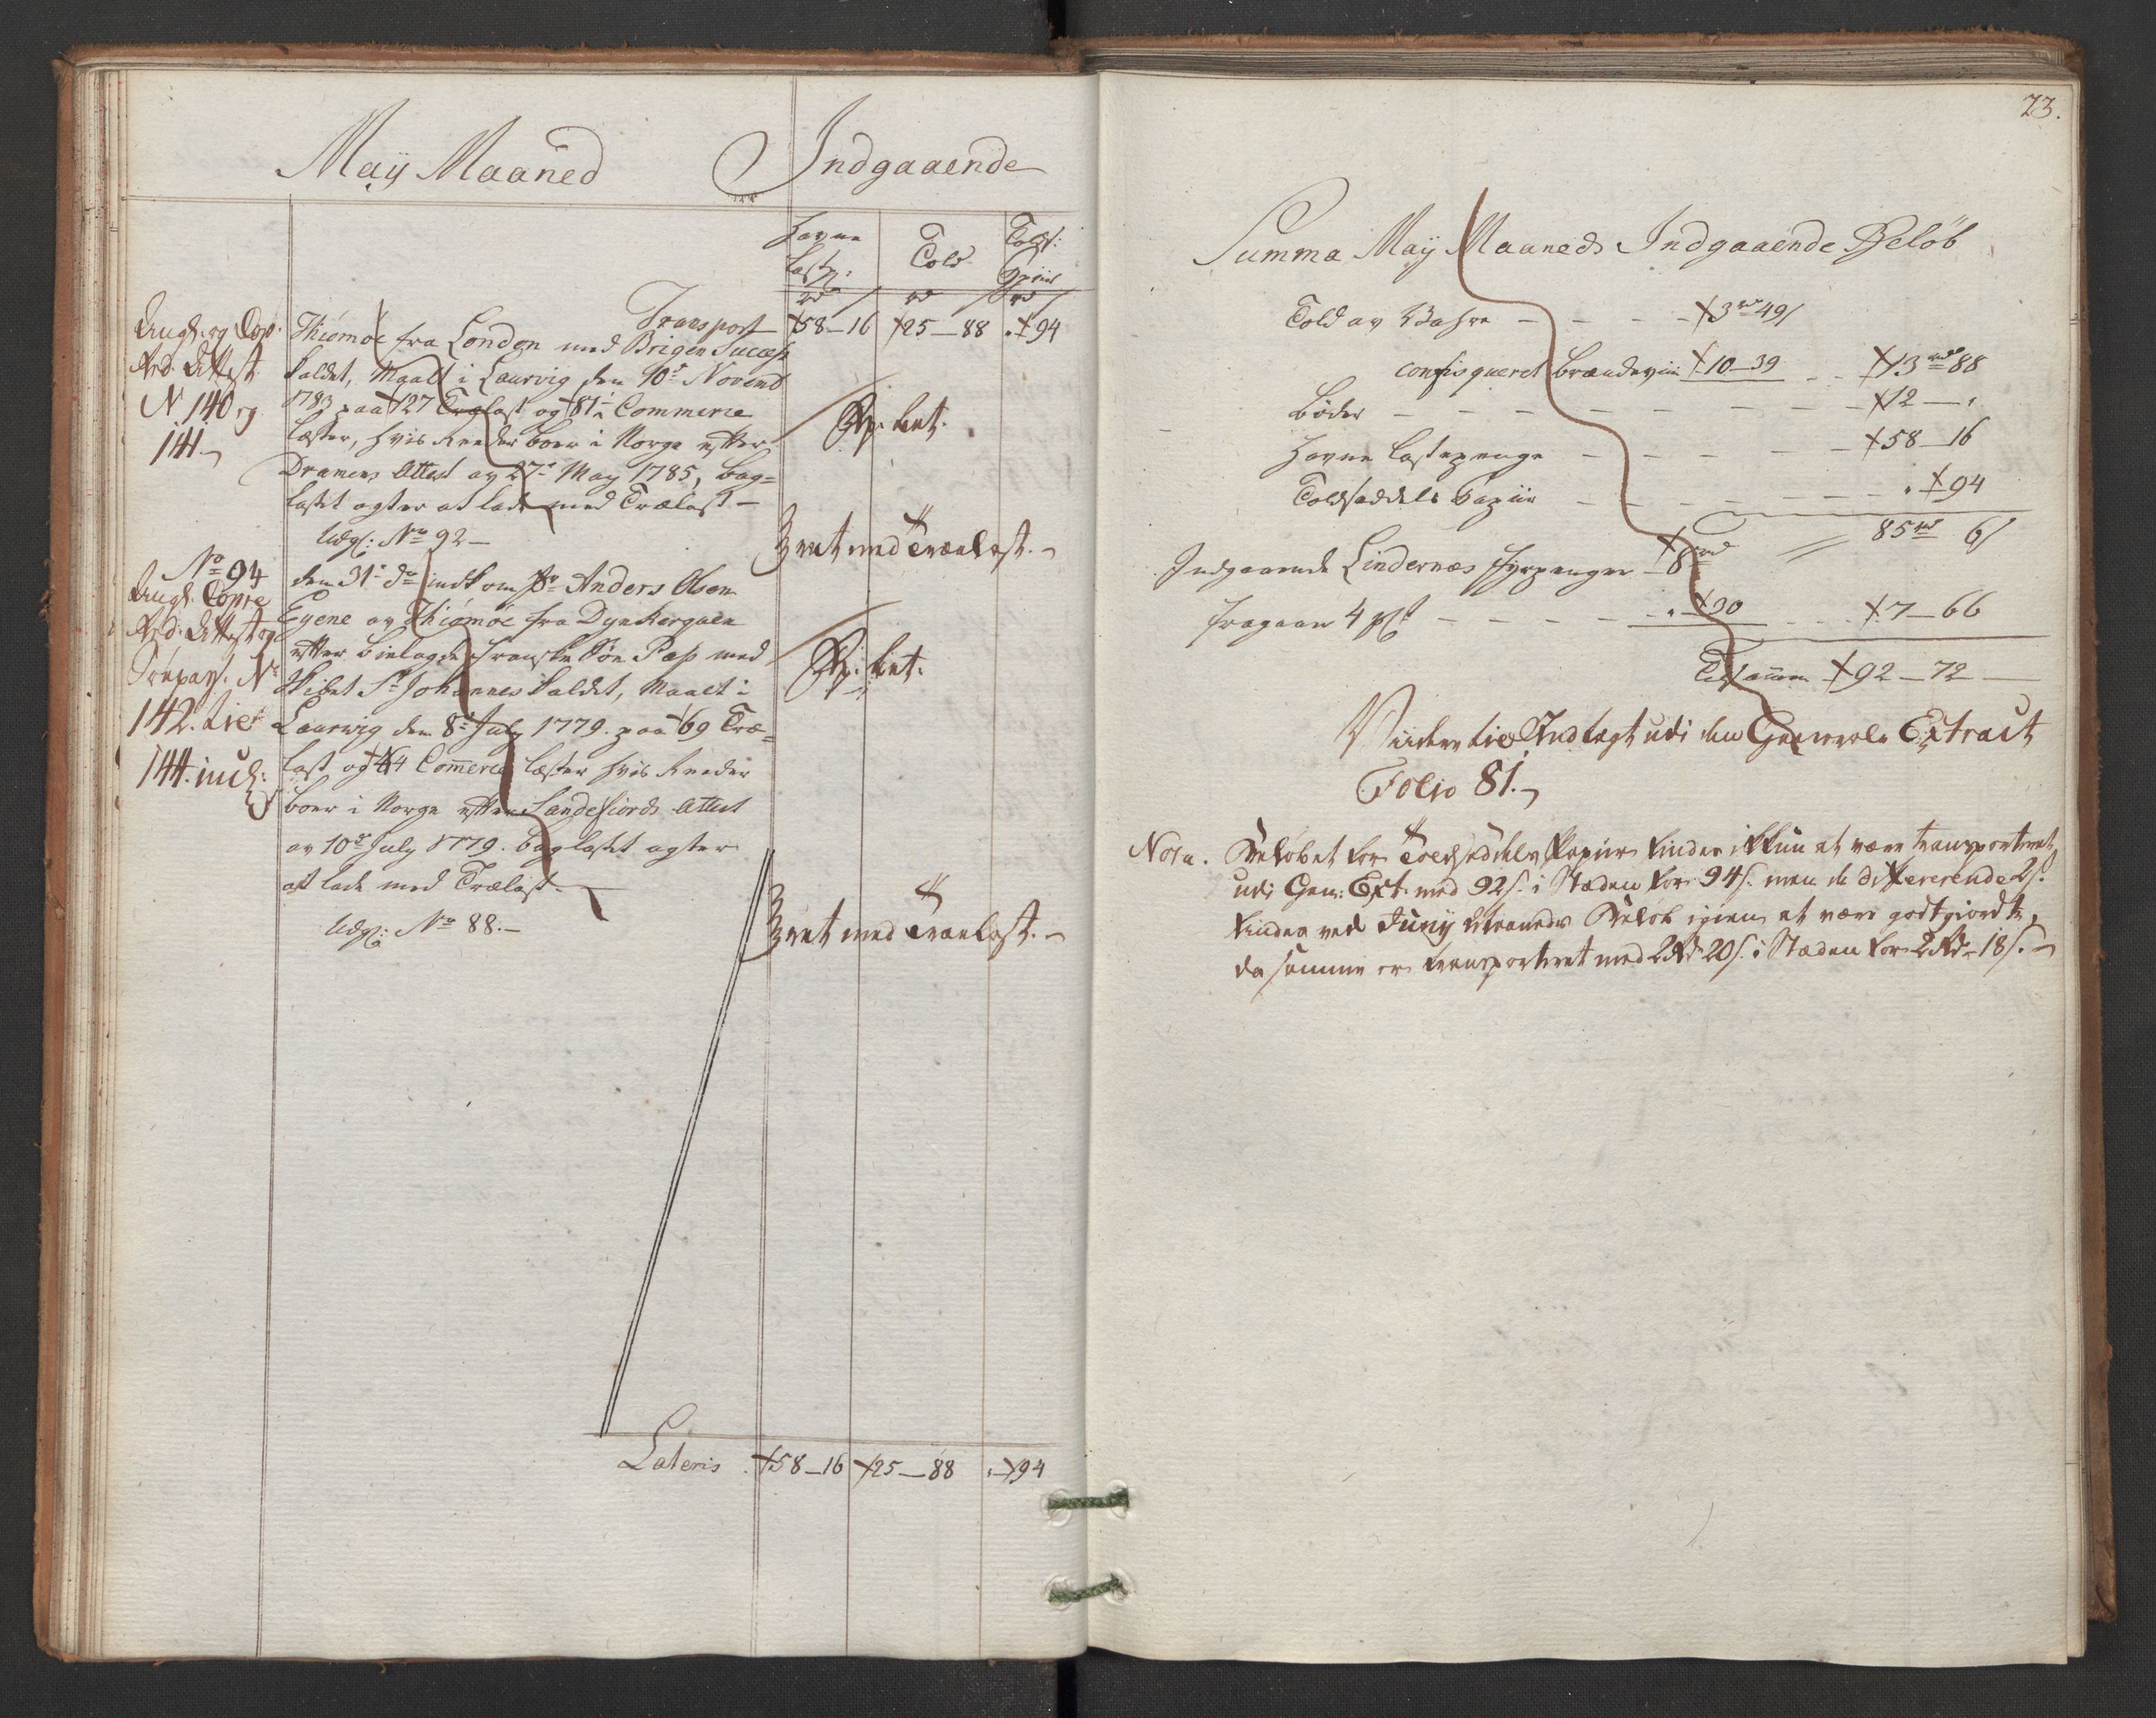 May Maaned Indgaaende
Havne Lastp: Told Tolds: Papiir
rd s rd s rd s
Transport 58_16 25_88 " 94
Angl. og Cop.
Ed. Attest
N 140 og
141.
Thiømøe fra London med Brigen Success
kaldet, Maalt i Laurvig den 10de Novemb
1783 paa 127 Trælast og 81½ Commerce
Læster, hvis Reeder boer i Norge efter
Dramens Attest av 27de May 1785, bag=
lastet agter at lade med Trælast
Udg: No 92
Er bet.
Zvet med Trælast.
No 94
Angl. Copie
Ed. Attest og
Søepas. No
142. til
144. incl:
den 31te do indkom Skr Anders Olsen
Eyene av Thiømøe fra Dynkerquen
efter bielagde Franske Søe Pass med
Skibet St Johannes kaldet, Maalt i
Laurvig den 8de July 1779. paa 69 Træ=
last og 44 Commerce læster hvis Reeder
boer i Norge efter Sandefiords Attest
av 10de July 1779. baglastet agter
at lade med Trælast.
Udg: No 88.
Er bet.
Zvet med Trælast.
Lateris 58_16 25_88 " 94
73.
Summa May Maaneds Indgaaende Beløb
Told av Vahre 3rd 49s
confisqueret brændeviin 10_39 13rd 88
Bøder 12 _ "
Havne Lastepenge 58_16
Toldseddels Papiir " 94
85rd 6s
Indgaaende Lindernæs Fyrpenger 8rd
fragaar 4 pCt " 30 7_66
Tilsammen 92_72
Viider til Indtægt udi den Generale Extract
Folio 81.
Nota. Beløbet for Toldseddels Papiir findes ikkun at være transporteret
udi Gen: Ext. med 92 s. i Stæden for 94 s. men de differerende 2 s.
findes ved Junij Maaneds Beløb igien at være godtgiordt,
da samme er transporteret med 2 Rd 20 s. i Stæden for 2 Rd 18 s.